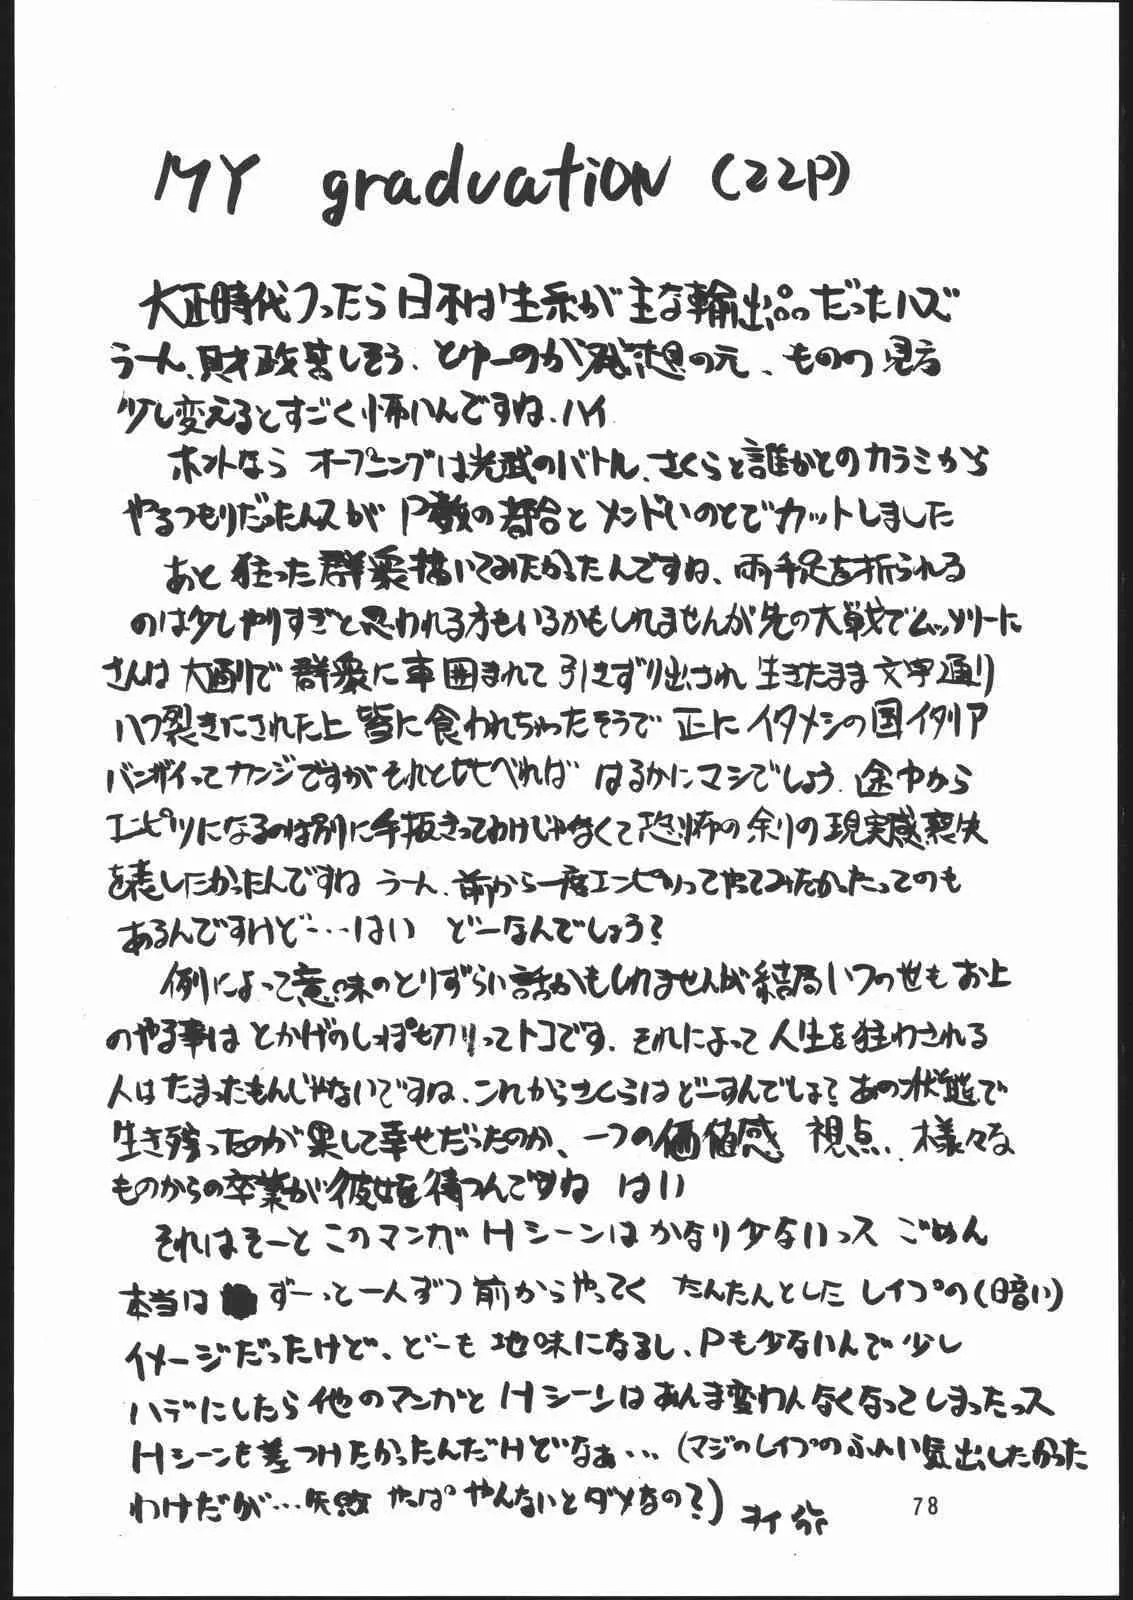 MY graduation (22P)
大正時代つったら日本は生糸が主な輸出品だったハズ
うーん、財政苦しそう、とゆーのが発想の元、ものの見方
少し変えるとすごく怖いんですね、ハイ
ホントなら オープニングは光武のバトル、さくらと誰かとのカラミから
やるつもりだったんスが P数の都合と メンドいのとでカットしました
あと 狂った群衆描いてみたかったんですね、両手足を折られる
のは少しやりすぎと思われる方もいるかもしれませんが先の大戦でムッソリーニ
さんは 大通りで 群衆に車囲まれて 引きずり出され 生きたまま 文字通り
八つ裂きにされた上 皆に食われちゃったそうで 正に イタメシの国イタリア
バンザイってカンジですが それと比べれば はるかにマシでしょう、途中から
エンピツになるのは別に手抜きってわけじゃなくて恐怖の余りの現実感喪失
を表したかったんですね うーん、前から一度エンピツってやってみたかったってのも
あるんですけど…はい どーなんでしょう?
例によって意味のとりずらい話かもしれませんが結局いつの世もお上
のやる事は とかげのしっぽ切りってトコです、それによって人生を狂わされる
人はたまったもんじゃないですね、これからさくらはどーすんでしょ?あの状態で
生き残ったのが果して幸せだったのか、一つの価値感 視点、様々な
ものからの卒業が彼女を待つんですね はい
それはそーと このマンガ Hシーンはかなり少ないっス ごめん
本当は ずーっと一人ずつ前からやってく たんたんとした レイプの(暗い)
イメージだったけど、どーも 地味になるし、Pも少ないんで少し
ハデにしたら他のマンガと Hシーンはあんま変わんなくなってしまったっス
Hシーンも差つけたかったんだけどなぁ… (マジのレイプのふんい気出したかった
わけだが…失敗 やっぱ やんないとダメなの?)
78